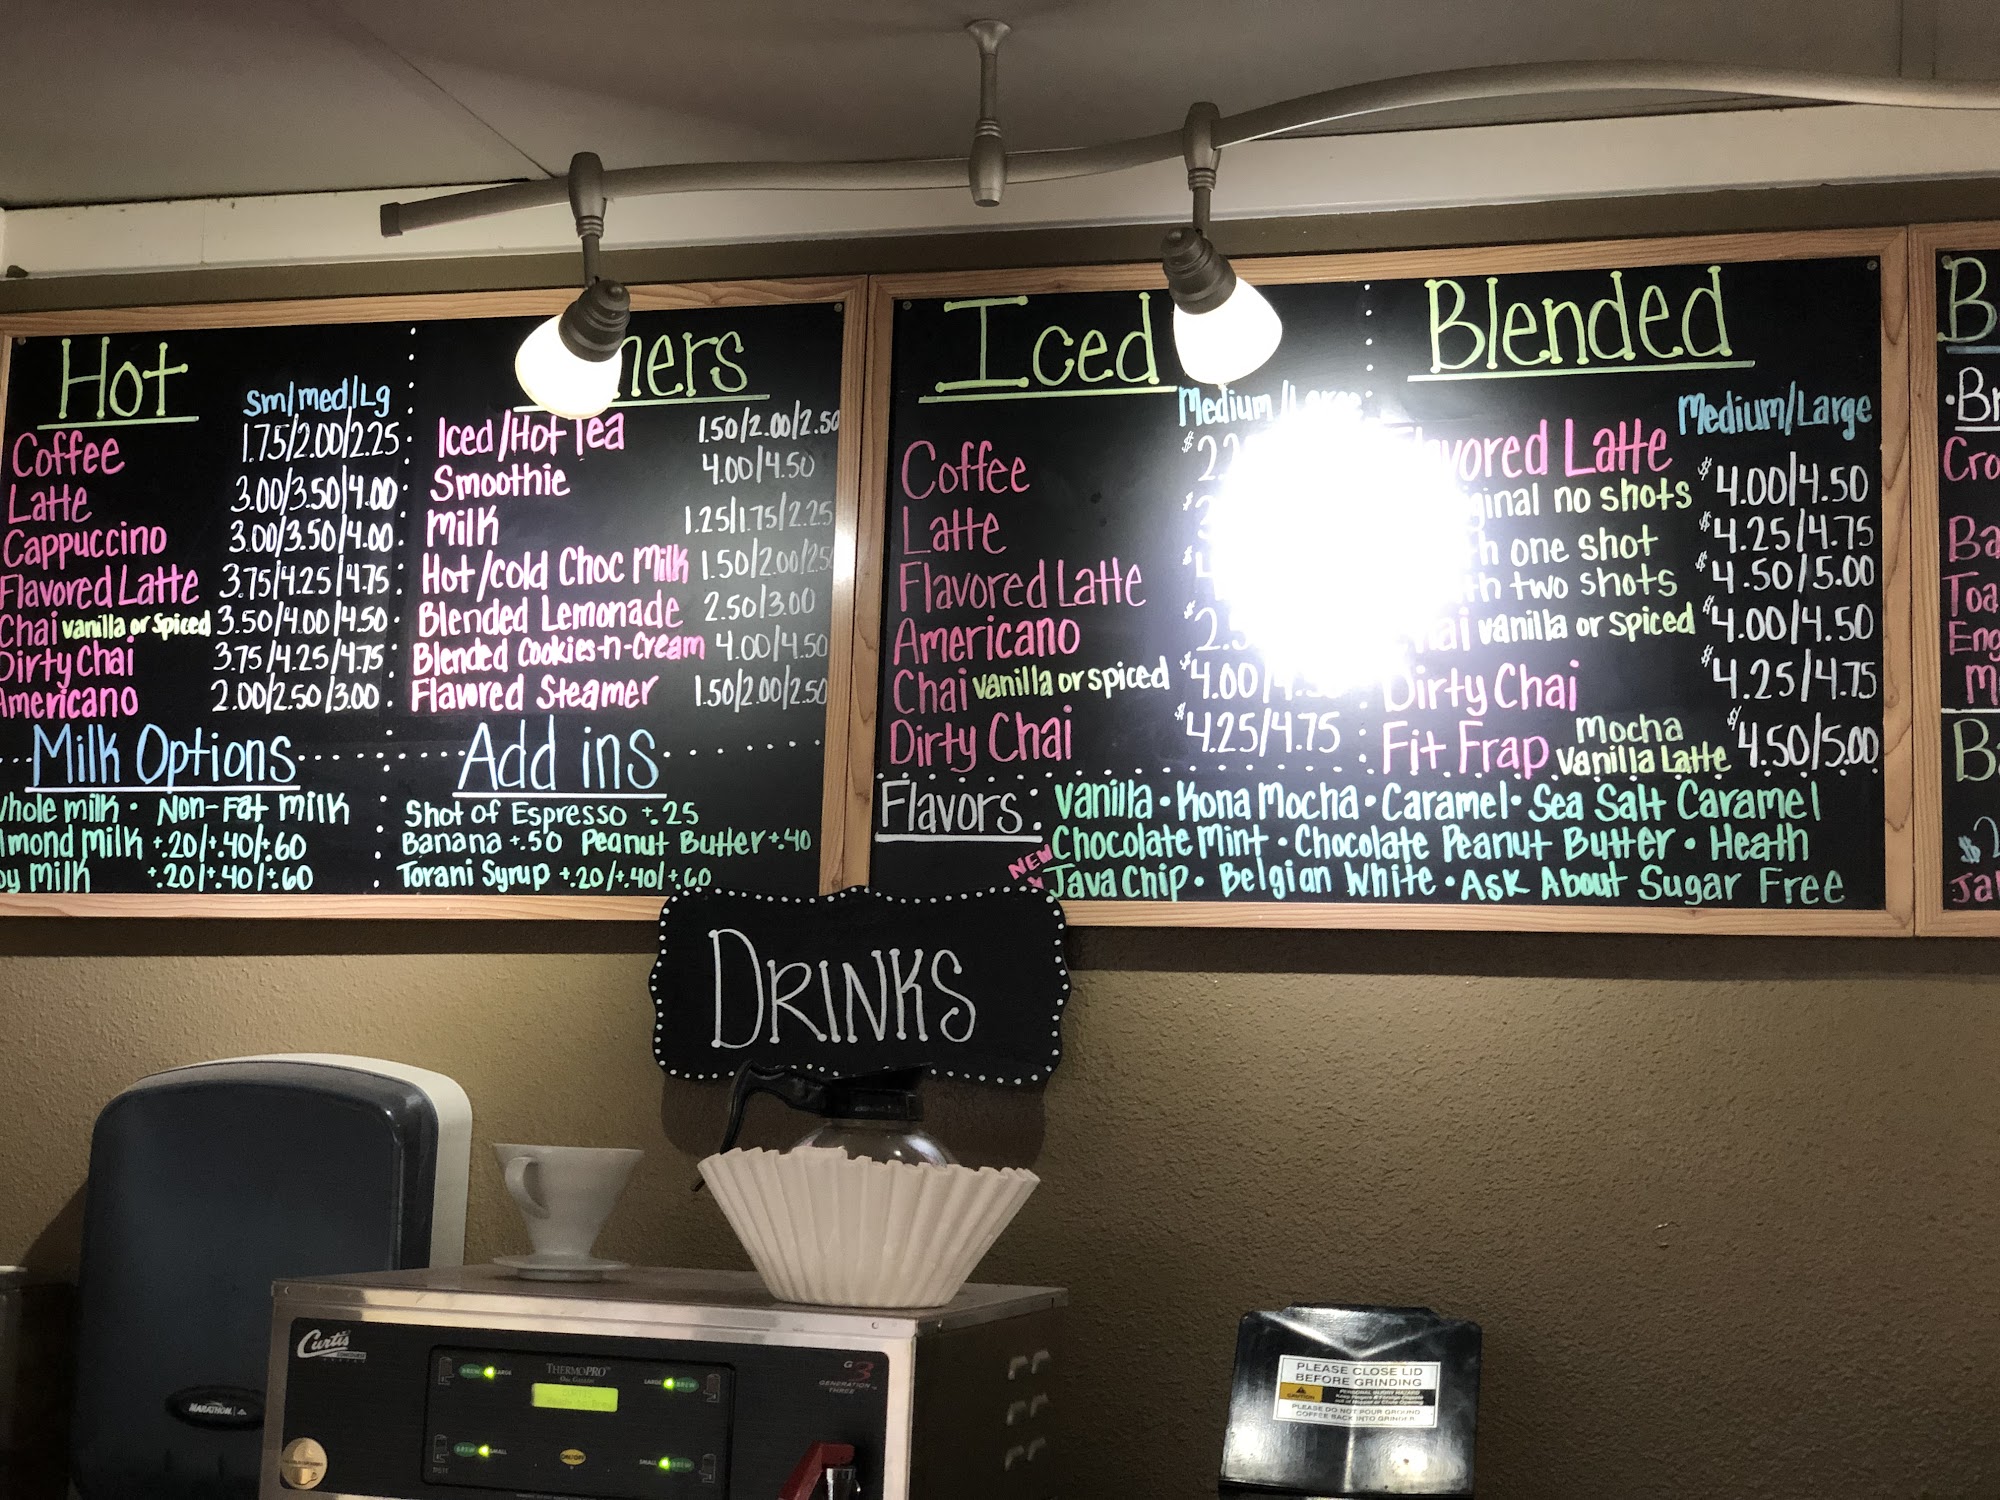 Hot
Sm/med/Lg
Coffee 1.75/2.00/2.25
Latte 3.00/3.50/4.00
Cappuccino 3.00/3.50/4.00
Flavored Latte 3.75/4.25/4.75
Chai vanilla or spiced 3.50/4.00/4.50
Dirty Chai 3.75/4.25/4.75
Americano 2.00/2.50/3.00
Iced/Hot Tea 1.50/2.00/2.50
Smoothie 4.00/4.50
Milk 1.25/1.75/2.25
Hot/cold Choc Milk 1.50/2.00/2.50
Blended Lemonade 2.50/3.00
Blended Cookies-n-Cream 4.00/4.50
Flavored Steamer 1.50/2.00/2.50
Milk Options
Whole milk • Non-Fat milk
Almond milk +.20/+.40/+.60
Soy milk +.20/+.40/+.60
Add ins
Shot of Espresso +.25
Banana +.50 Peanut Butter +.40
Torani Syrup +.20/+.40/+.60
Iced
Medium
Coffee
Latte
Flavored Latte
Americano
Chai vanilla or spiced $4.00
Dirty Chai $4.25/4.75
Blended
Medium/Large
Flavored Latte
no shots $4.00/4.50
one shot $4.25/4.75
two shots $4.50/5.00
Chai vanilla or spiced $4.00/4.50
Dirty Chai $4.25/4.75
Fit Frap Mocha
Vanilla Latte $4.50/5.00
Flavors: Vanilla • Kona Mocha • Caramel • Sea Salt Caramel
Chocolate Mint • Chocolate Peanut Butter • Heath
NEW Java Chip • Belgian White • Ask About Sugar Free
DRINKS
Curtis
THERMOPRO
G3
GENERATION THREE
BREW LARGE
LARGE BREW
BREW SMALL
SMALL BREW
ON/OFF
MARATHON
PLEASE CLOSE LID
BEFORE GRINDING
CAUTION
PLEASE DO NOT POUR GROUND
COFFEE BACK INTO GRINDER